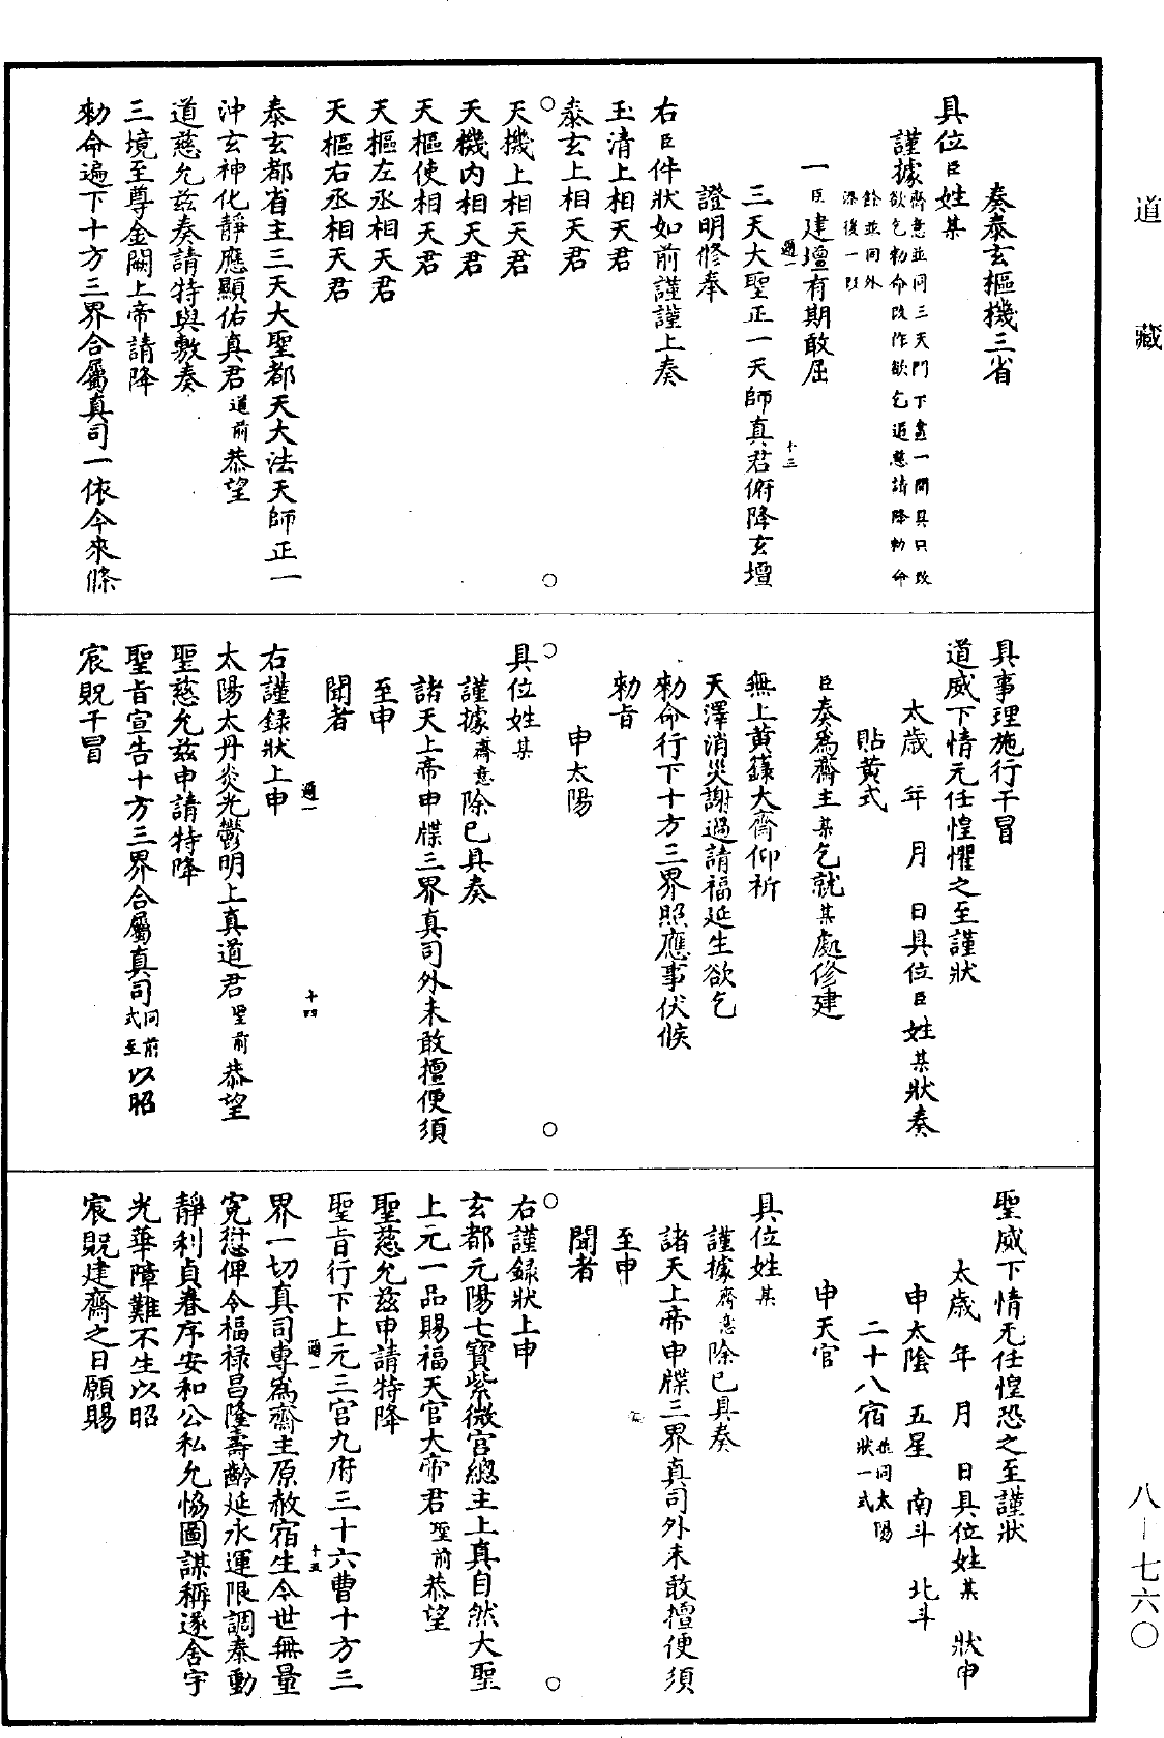 道藏
奏泰玄樞機三省
具位臣姓某
謹據齋意並同三天門下盡一開具只改
欲乞勑命改作欲乞道慈請降勑命
餘並同外
添後一段
一臣建壇有期敢屈
三天大聖正一天師真君俯降玄壇
證明修奉
右臣件狀如前謹謹上奏
玉清上相天君
泰玄上相天君
天機上相天君
天機內相天君
天樞使相天君
天樞左丞相天君
天樞右丞相天君
泰玄都省主三天大聖都天大法天師正一
沖玄神化靜應顯佑真君道前恭望
道慈允茲奏請特與敷奏
三境至尊金闕上帝請降
勑命遍下十方三界合屬真司一依今來條
具事理施行干冒
道威下情无任惶懼之至謹狀
太歲 年 月 日具位臣姓某狀奏
貼黃式
臣奏爲齋主某乞就某處修建
無上黃籙大齋仰祈
天澤消災謝過請福延生欲乞
勑命行下十方三界照應事伏候
勑旨
申太陽
具位姓某
謹據齋意除已具奏
諸天上帝申牒三界真司外未敢擅便須
至申
聞者
通一
十四
右謹録狀上申
太陽大丹炎光鬱明上真道君聖前恭望
聖慈允茲申請特降
聖旨宣告十方三界合屬真司同前式至以昭
宸貺干冒
聖威下情无任惶恐之至謹狀
太歲 年 月 日具位姓某 狀申
申太陰 五星 南斗 北斗
二十八宿並同太陽狀一式
申天官
具位姓某
謹據齋意除已具奏
諸天上帝申牒三界真司外未敢擅便須
至申
聞者
右謹録狀上申
玄都元陽七寶紫微宫總主上真自然大聖
上元一品賜福天官大帝君聖前恭望
聖慈允茲申請特降
聖旨行下上元三宫九府三十六曹十方三
通一
十五
界一切真司專爲齋主原赦宿生今世無量
寃愆俾令福禄昌隆壽齡延永運限調泰動
靜利貞眷序安和公私允恊圖謀稱遂舍宇
光華障難不生以昭
宸貺建齋之日願賜
八－七六〇